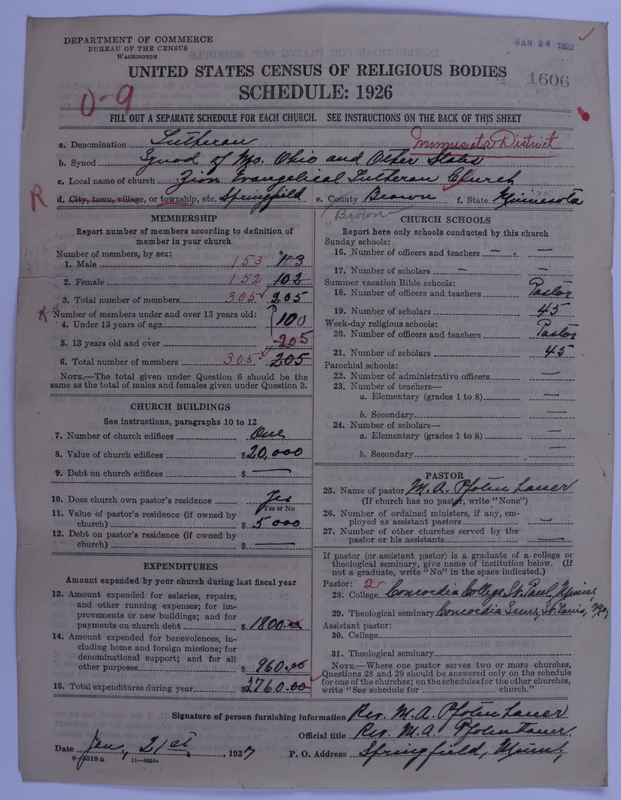 DEPARTMENT OF COMMERCE
BUREAU OF THE CENSUS
WASHINGTON
JAN 24
UNITED STATES CENSUS OF RELIGIOUS BODIES
1606
SCHEDULE: 1926
0-9
FILL OUT A SEPARATE SCHEDULE FOR EACH CHURCH. SEE INSTRUCTIONS ON THE BACK OF THIS SHEET
a. Denomination Lutheran
Minnesota District
b. Synod Synod of Mo. Ohio and Other States
c. Local name of church Zion Evangelical Lutheran Church
R
d. City, town, village, or township, etc. Springfield e. County Brown f. State Minnesota
Brown
MEMBERSHIP
Report number of members according to definition of
member in your church
Number of members, by sex:
1. Male 153 103
2. Female 152 102
3. Total number of members 305 205
Number of members under and over 13 years old:
4. Under 13 years of age 100
5. 13 years old and over 205
6. Total number of members 305 205
NOTE.—The total given under Question 6 should be the
same as the total of males and females given under Question 3.
CHURCH BUILDINGS
See instructions, paragraphs 10 to 12
7. Number of church edifices One
8. Value of church edifices $20,000
9. Debt on church edifices $ —
10. Does church own pastor's residence Yes
Yes or No
11. Value of pastor's residence (if owned by
church) $ 5000
12. Debt on pastor's residence (if owned by
church) $ —
EXPENDITURES
Amount expended by your church during last fiscal year
13. Amount expended for salaries, repairs,
and other running expenses; for im-
provements or new buildings; and for
payments on church debt $ 1800.00
14. Amount expended for benevolences, in-
cluding home and foreign missions; for
denominational support; and for all
other purposes $ 960.00
15. Total expenditures during year $2760.00
CHURCH SCHOOLS
Report here only schools conducted by this church
Sunday schools:
16. Number of officers and teachers — —
17. Number of scholars — —
Summer vacation Bible schools:
18. Number of officers and teachers Pastor
19. Number of scholars 45
Week-day religious schools:
20. Number of officers and teachers Pastor
21. Number of scholars 45
Parochial schools:
22. Number of administrative officers —
23. Number of teachers—
a. Elementary (grades 1 to 8) —
b. Secondary —
24. Number of scholars—
a. Elementary (grades 1 to 8) —
b. Secondary —
PASTOR
25. Name of pastor M. A. Pfotenhauer
(If church has no pastor, write "None")
26. Number of ordained ministers, if any, em-
ployed as assistant pastors —
27. Number of other churches served by the
pastor or his assistants —
If pastor (or assistant pastor) is a graduate of a college or
theological seminary, give name of institution below. (If
not a graduate, write "No" in the space indicated.)
Pastor: 2
28. College Concordia College St. Paul, Minn.
29. Theological seminary Concordia Sem., St. Louis, Mo,
Assistant pastor:
30. College
31. Theological seminary
NOTE.—Where one pastor serves two or more churches,
Questions 28 and 29 should be answered only on the schedule
for one of the churches; on the schedules for the other churches,
write "See schedule for church."
Signature of person furnishing information Rev. M. A. Pfotenhauer
Official title Rev. M. A. Pfotenhauer
Date Jan, 21st, 1927 P. O. Address Springfield, Minn,
8-2319a 11—9024a